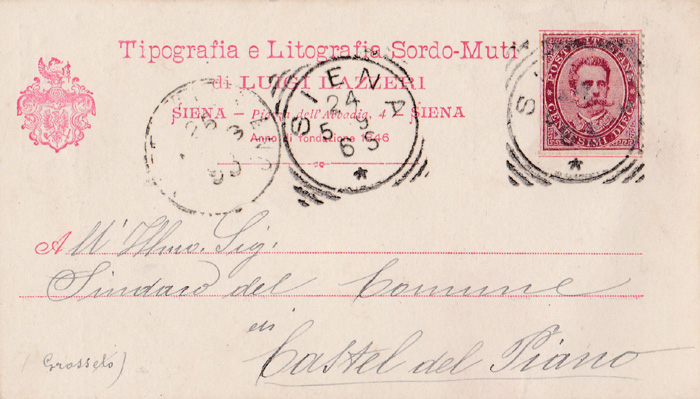 Tipografia e Litografia Sordo-Muti
di LUIGI LAZZERI
SIENA – Piazza dell'Abbadia, 4 – SIENA
Anno di fondazione 1846
SIENA
24
5
6 S
POSTE ITALIANE
CENTESIMI DIECI
S
A
All'Illmo. Sig.
Sindaco del Comune
di
Castel del Piano
Grosseto)